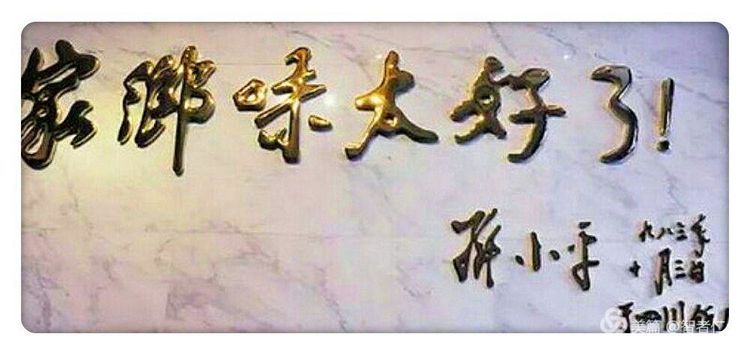 家鄉味太好了!
邓小平
一九八三年
十月三日
于四川饭
美篇 @智者仁